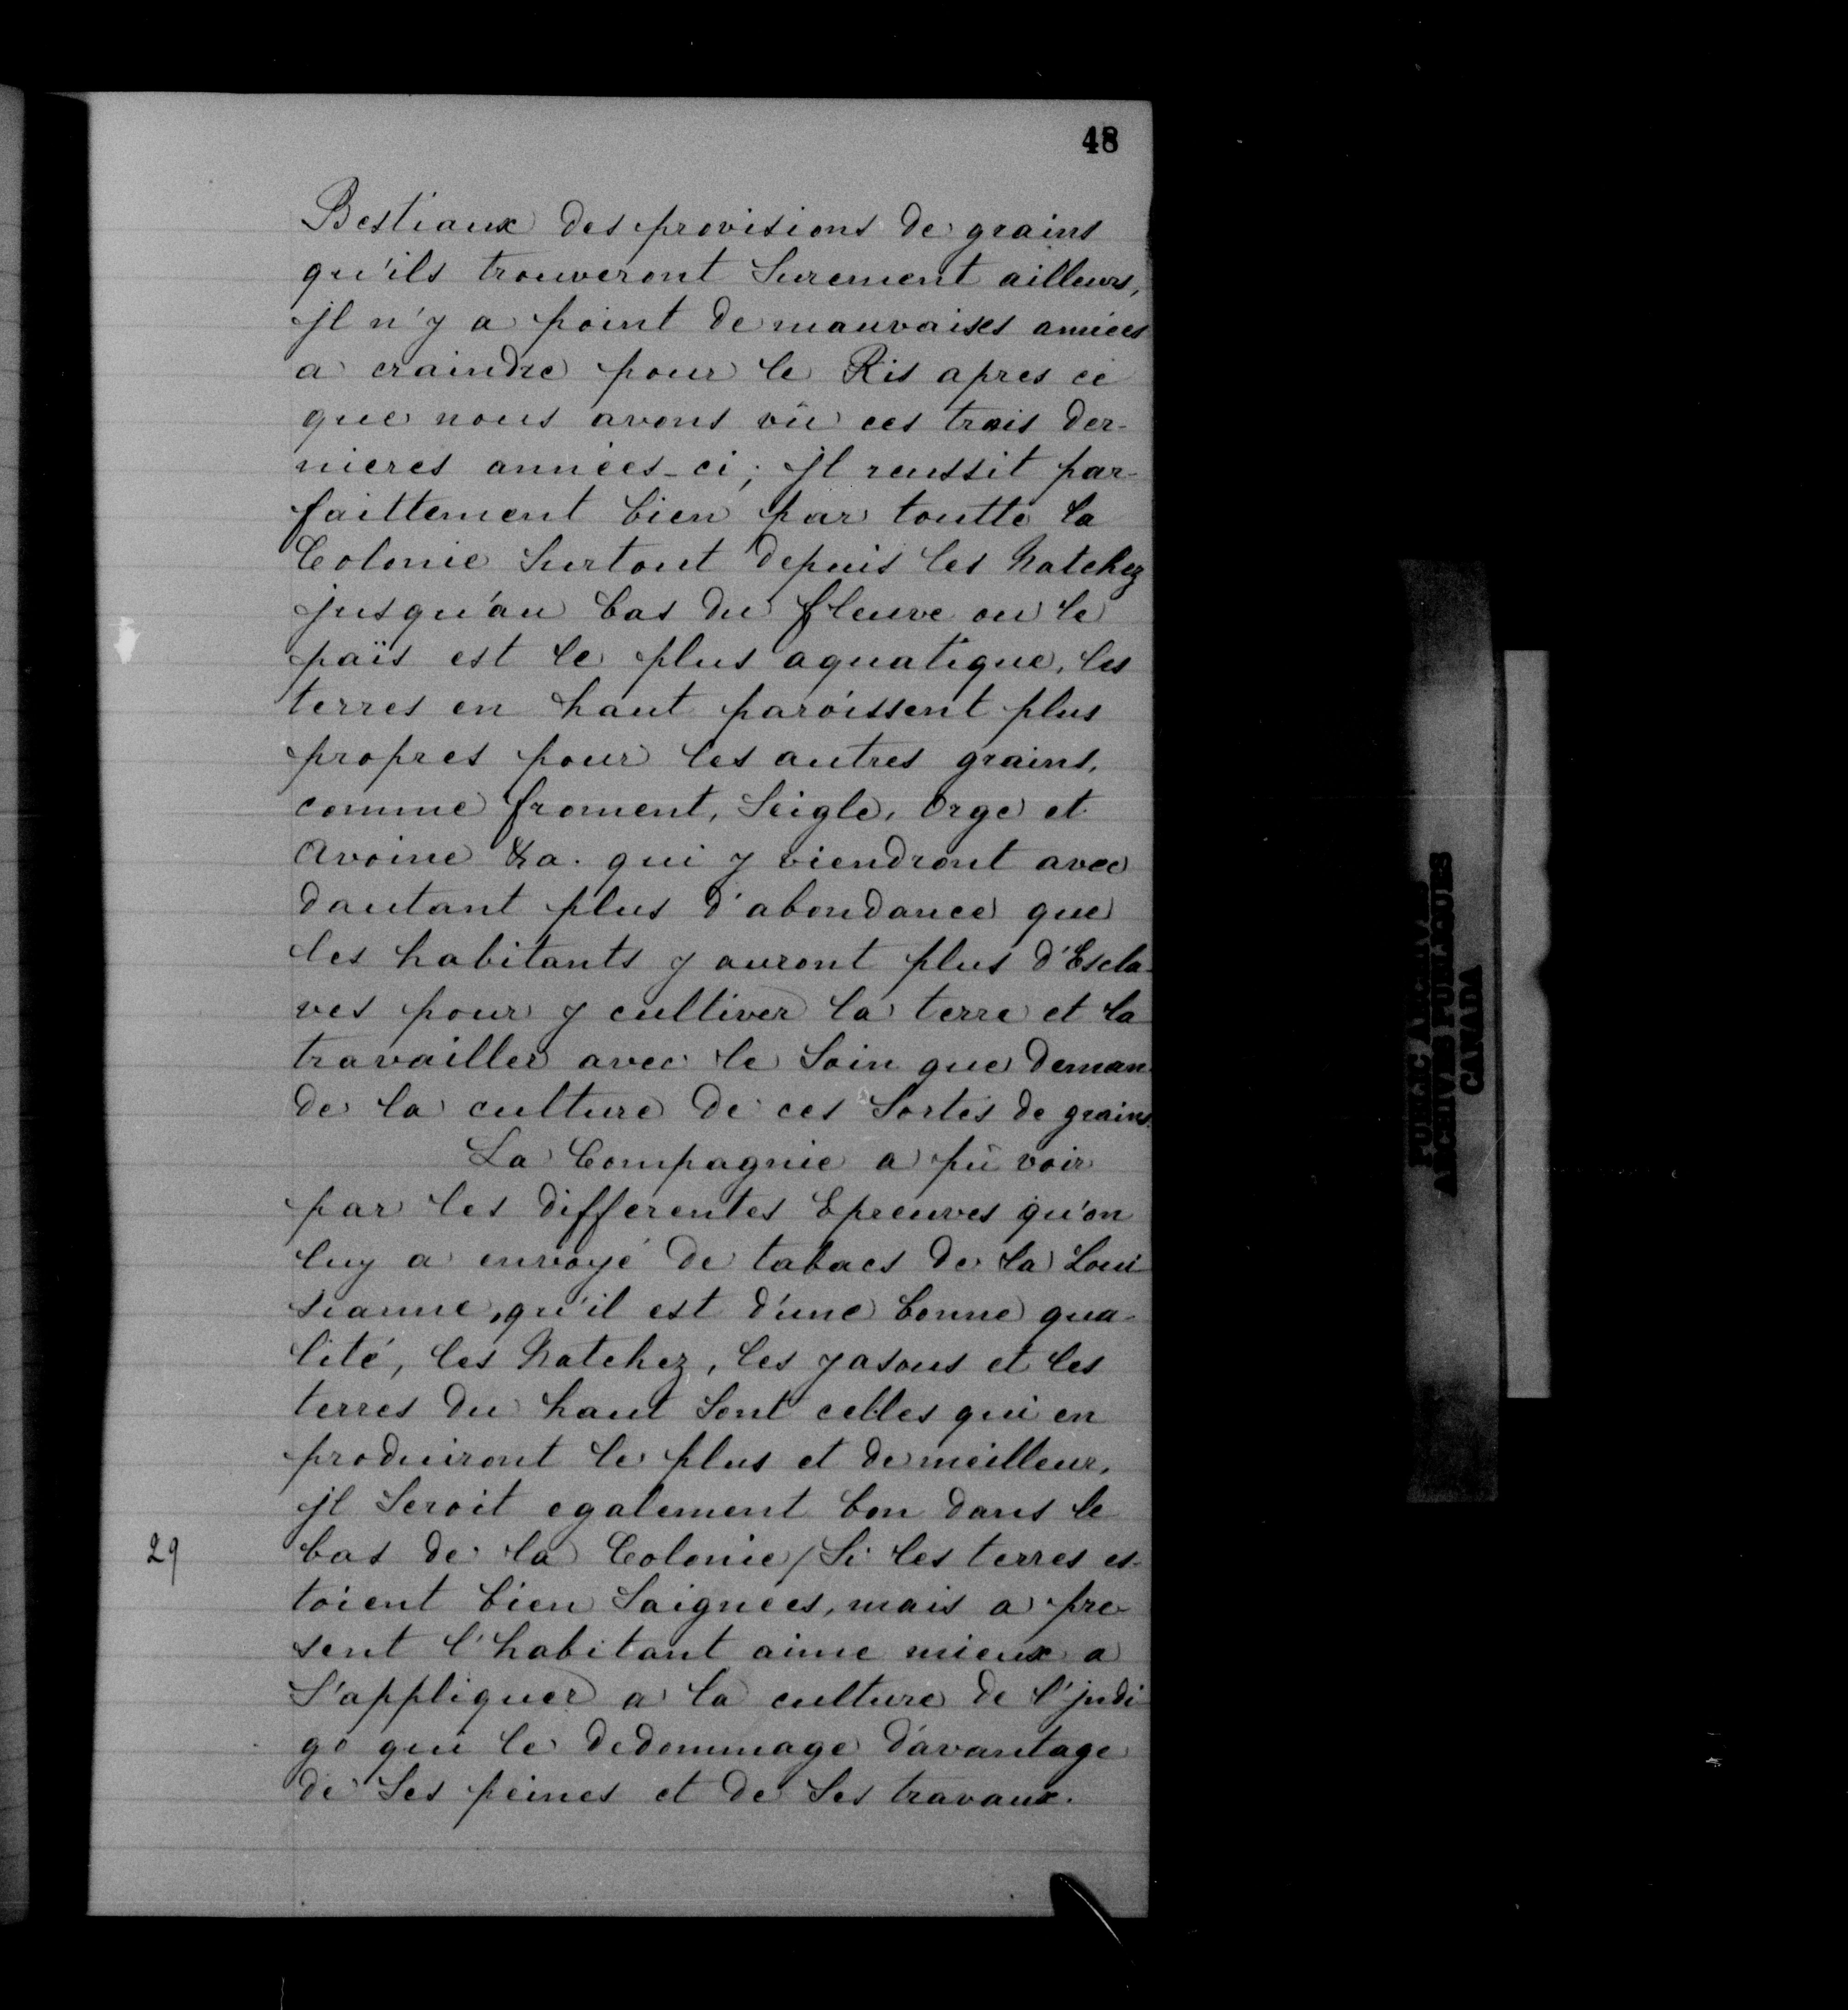 48
Bestiaux des provisions de grains
qu'ils trouveront Surement ailleurs,
jl n'y a point de mauvaises années
a craindre pour le Ris apres ce
que nous avons vû ces trois der-
nieres années-ci; jl reussit par-
faittement bien par toutte la
Colonie Surtout depuis les Natchez
jusqu'au bas du fleuve ou le
païs est le plus aquatique, les
terres en haut paroissent plus
propres pour les autres grains,
comme froment, Seigle, Orge et
Avoine &a. qui y viendront avec
dautant plus d'abondance que
les habitants y auront plus d'Escla-
ves pour y cultiver la terre et la
travailler avec le Soin que deman
de la culture de ces Sortes de grains.
La Compagnie a pû voir
par les differentes Epreuves qu'on
luy a envoyé de tabacs de la Loui
sianne, qu'il est d'une bonne qua-
lité, les Natchez, les yasous et les
terres du haut Sont celles qui en
produiront le plus et de meilleur,
jl Seroit egalement bon dans le
29 bas de la Colonie / Si les terres es-
toient bien Saignées, mais a pre-
sent l'habitant aime mieux a
S'appliquer a la culture de l'jndi
go qui le dedommage d'avantage
de Ses peines et de Ses travaux.
ARCHIVES PUBLIQUES
CANADA